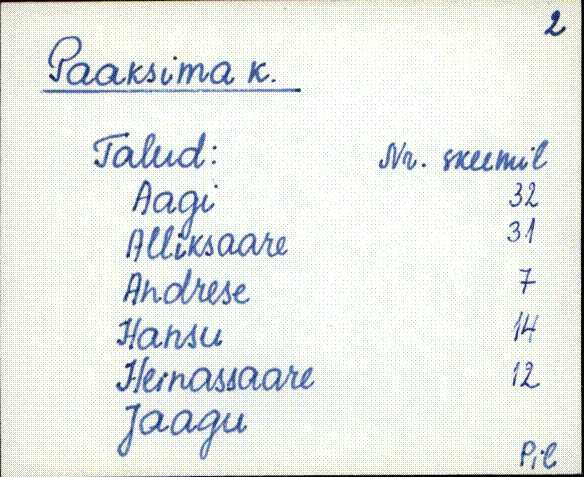 2
Paaksima k.
Talud: Nr. skeemil
Aagi 32
Alliksaare 31
Andrese 7
Hansu 14
Heinassaare 12
Jaagu
Pil